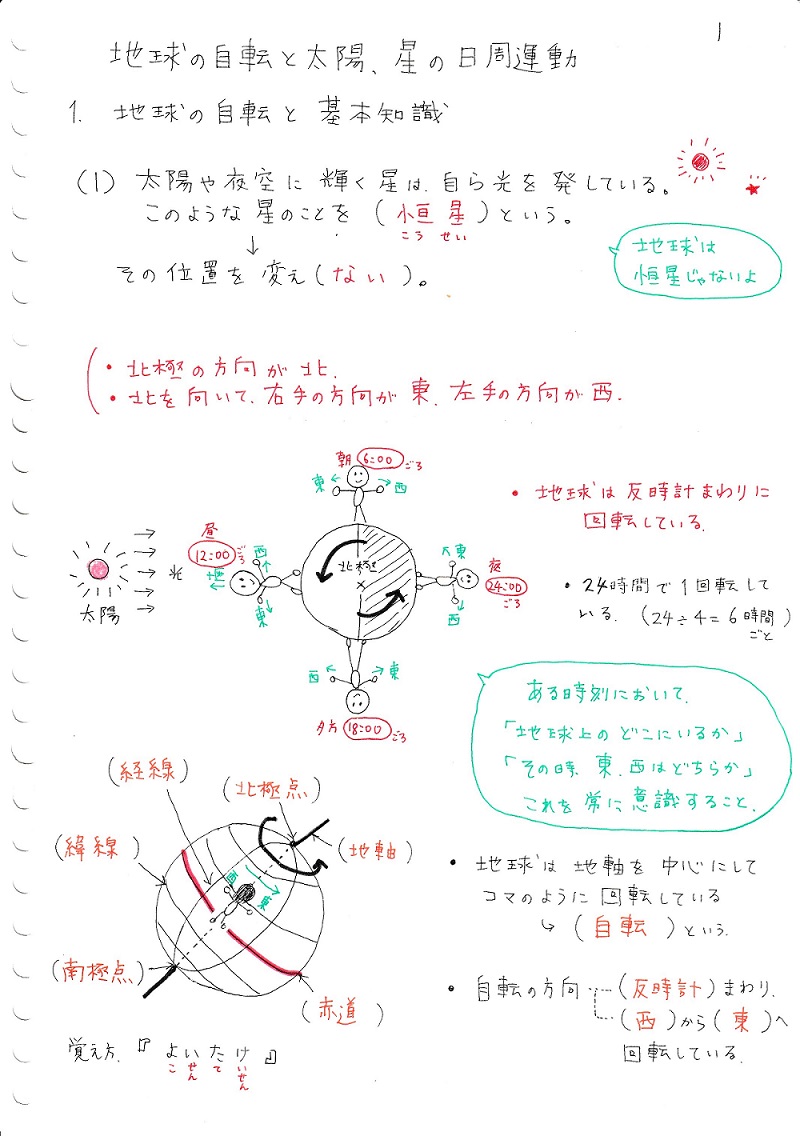 1
地球の自転と太陽、星の日周運動
1. 地球の自転と基本知識
(1) 太陽や夜空に輝く星は、自ら光を発している。
このような星のことを(恒星)という。
こう せい
↓
その位置を変え(ない)。
地球は
恒星じゃないよ
・北極の方向が北.
・北を向いて、右手の方向が東、左手の方向が西.
朝 6:00 ごろ
東 西
・地球は反時計まわりに
回転している.
昼
12:00 ごろ
西
東
光
太陽
北極
×
東
西
夜
24:00
ごろ
・24時間で1回転して
いる. (24÷4=6時間
ごと)
西 東
夕方 18:00 ごろ
ある時刻において、
「地球上のどこにいるか」
「その時、東、西はどちらか」
これを常に意識すること.
(経線)
(北極点)
(緯線)
(地軸)
西
東
(南極点)
(赤道)
・地球は地軸を中心にして
コマのように回転している
↳(自転)という.
・自転の方向…(反時計)まわり.
(西)から(東)へ
回転している.
覚え方.『よいたてけ』
こ せん て いせん